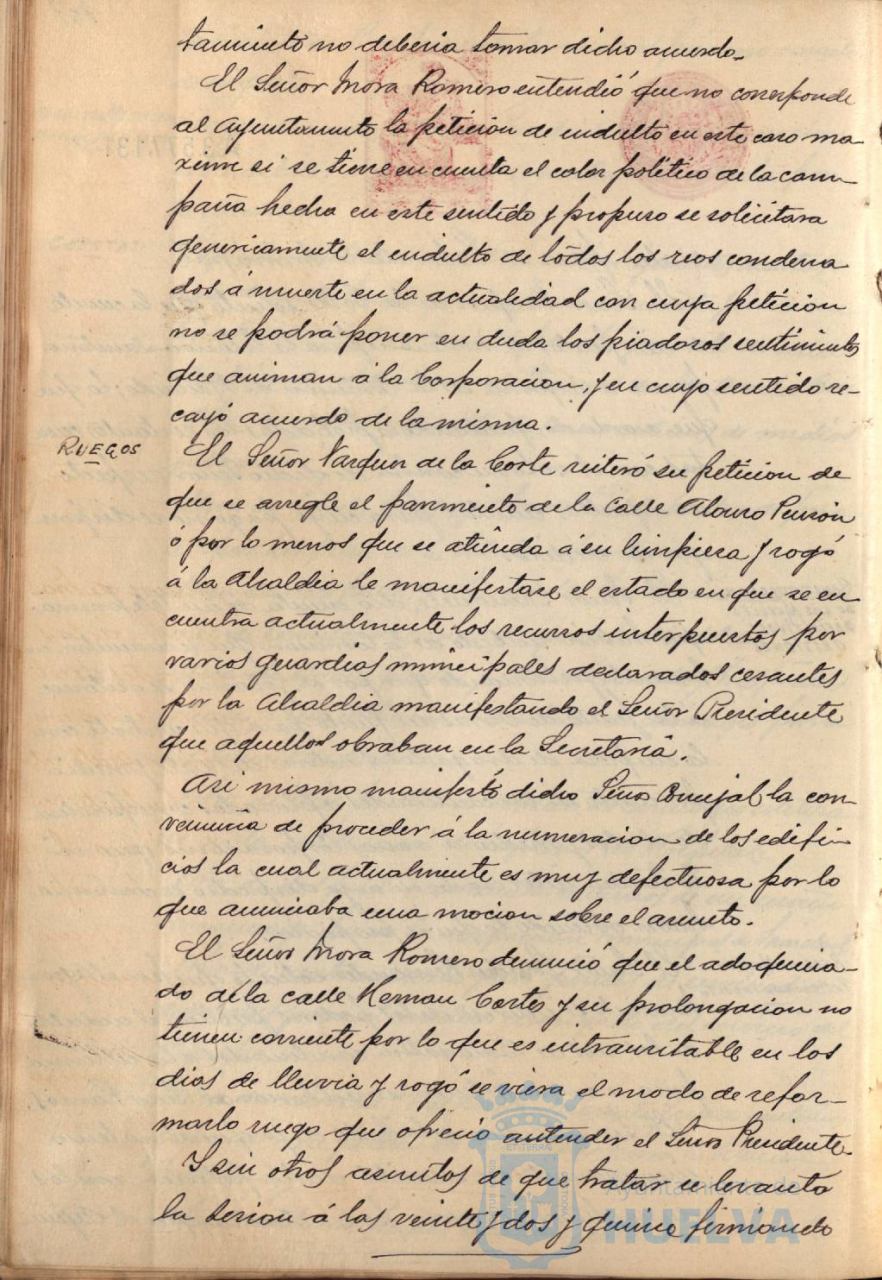 tamiento no deberia tomar dicho acuerdo.
El Señor Mora Romero entendió que no corresponde
al Ayuntamiento la peticion de indulto en este caso ma-
xime si se tiene en cuenta el color politico de la cam-
paña hecha en este sentido y propuso se solicitara
genericamente el indulto de todos los reos condena
dos á muerte en la actualidad con cuya peticion
no se podrá poner en duda los piadosos sentimientos
que animan á la Corporacion, y en cuyo sentido re-
cayó acuerdo de la misma.
RUEGOS
El Señor Vazquez de la Corte reiteró su peticion de
que se arregle el pavimento de la Calle Alonso Pinzón
ó por lo menos que se atienda á su limpieza y rogó
á la Alcaldia le manifestase el estado en que se en
cuentra actualmente los recursos interpuestos por
varios guardias municipales declarados cesantes
por la Alcaldia manifestando el Señor Presidente
que aquellos obraban en la Secretaria.
Asi mismo manifestó dicho Señor Concejal la con-
veniencia de proceder á la numeracion de los edifi-
cios la cual actualmente es muy defectuosa por lo
que anunciaba una mocion sobre el asunto.
El Señor Mora Romero denunció que el adoquina-
do de la calle Hernan Cortes y su prolongacion no
tienen corriente por lo que es intransitable en los
dias de lluvia y rogó se viera el modo de refor-
marlo ruego que ofreció antender el Señor Presidente.
Y sin otros asuntos de que tratar se levanto
la sesion á las veinte y dos y quince firmando
Ayuntamiento de
HUELVA